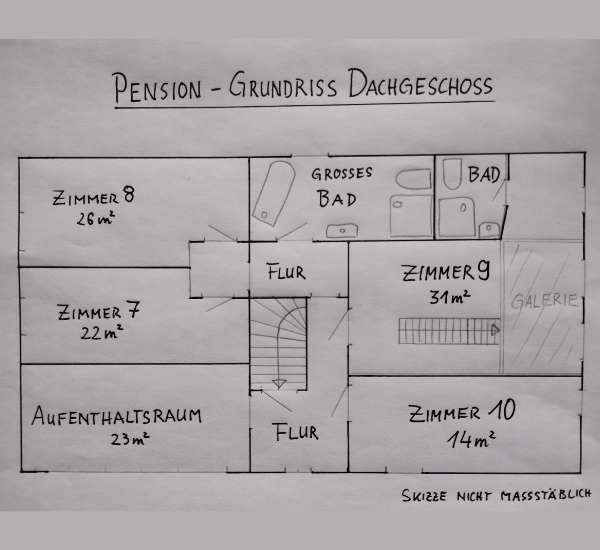 PENSION - GRUNDRISS DACHGESCHOSS
GROSSES
BAD
BAD
ZIMMER 8
26 m²
FLUR
ZIMMER 9
31 m²
GALERIE
ZIMMER 7
22 m²
AUFENTHALTSRAUM
23 m²
FLUR
ZIMMER 10
14 m²
SKIZZE NICHT MASSSTÄBLICH